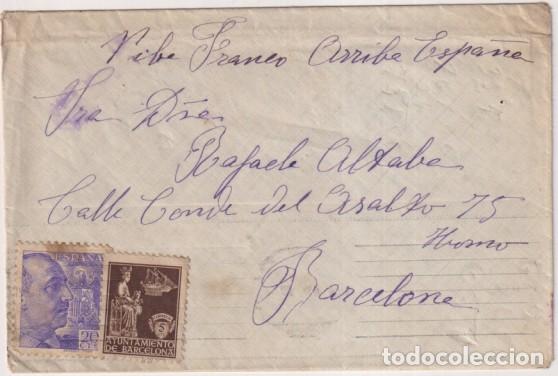 Vibe Franco Arriba España
Sra Dña
Rafaele Altaba
Calle Conde del Asalto 75
Horno
Barcelona
ESPAÑA
20
CTS
5
AYUNTAMIENTO
DE BARCELONA
todocoleccion
todocoleccion.net